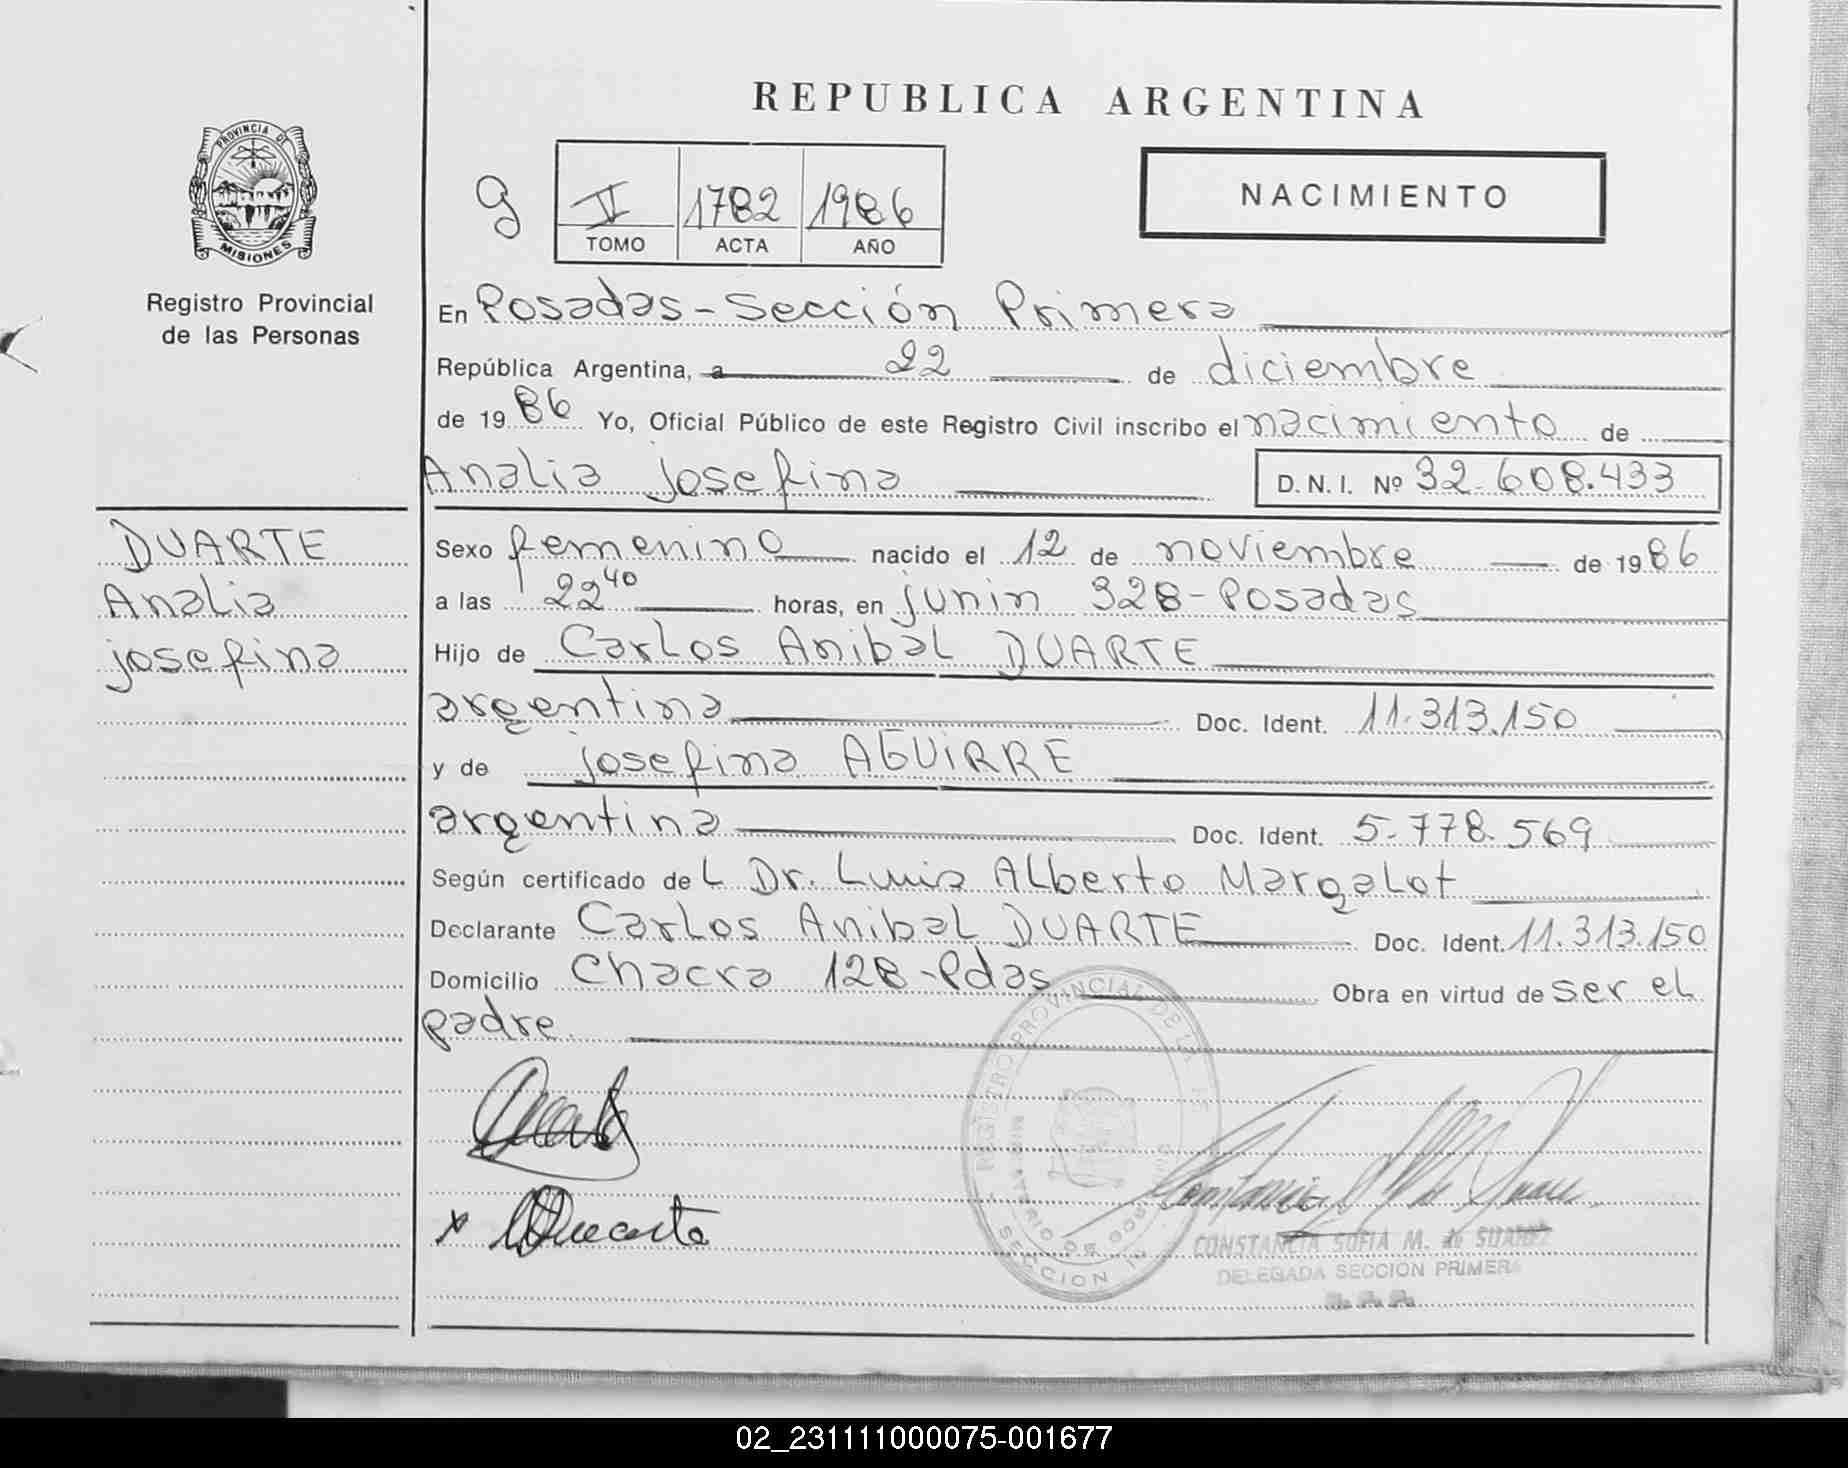 REPUBLICA ARGENTINA
PROVINCIA DE
MISIONES
Registro Provincial
de las Personas
g
II 1782 1986
TOMO ACTA AÑO
NACIMIENTO
En Posadas-Sección Primera
República Argentina, a 22 de diciembre
de 1986 Yo, Oficial Público de este Registro Civil inscribo el nacimiento de
Analia Josefina D.N.I. Nº 32.608.433
DUARTE
Analia
josefina
Sexo femenino nacido el 12 de noviembre de 1986
a las 22 40 horas, en junin 328-Posadas
Hijo de Carlos Anibal DUARTE
argentina Doc. Ident. 11.313.150
y de josefina AGUIRRE
argentina Doc. Ident. 5.778.569
Según certificado del Dr. Luis Alberto Margalot
Declarante Carlos Anibal DUARTE Doc. Ident. 11.313.150
Domicilio Chacra 128-Pdas Obra en virtud de ser el
padre.
REGISTRO PROVINCIAL DE LAS PE
MINISTERIO DE GOBIERNO
SECCION
x Duarte
CONSTANCIA SOFIA M. de SUAREZ
DELEGADA SECCION PRIMERA
02_231111000075-001677